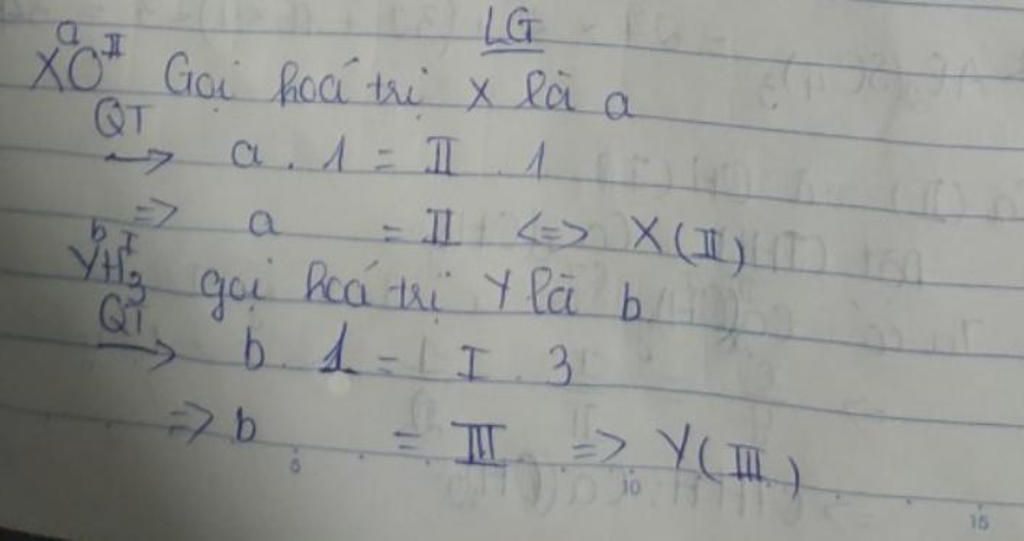 LG
XO Gọi hoá trị X là a
a II
QT
→ a . 1 = II . 1
=> a = II <=> X (II)
b I
YH3 gọi hoá trị Y là b
QT
→ b . 1 = I . 3
=> b = III => Y (III)
5 10 15